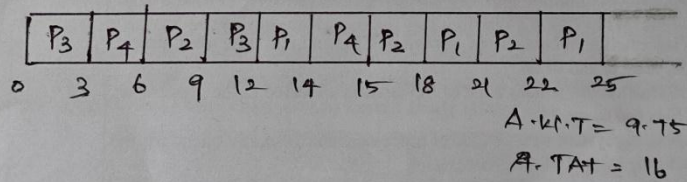 P3 P4 P2 P3 P1 P4 P2 P1 P2 P1
0 3 6 9 12 14 15 18 21 22 25
A.W.T = 9.75
A. TAT = 16